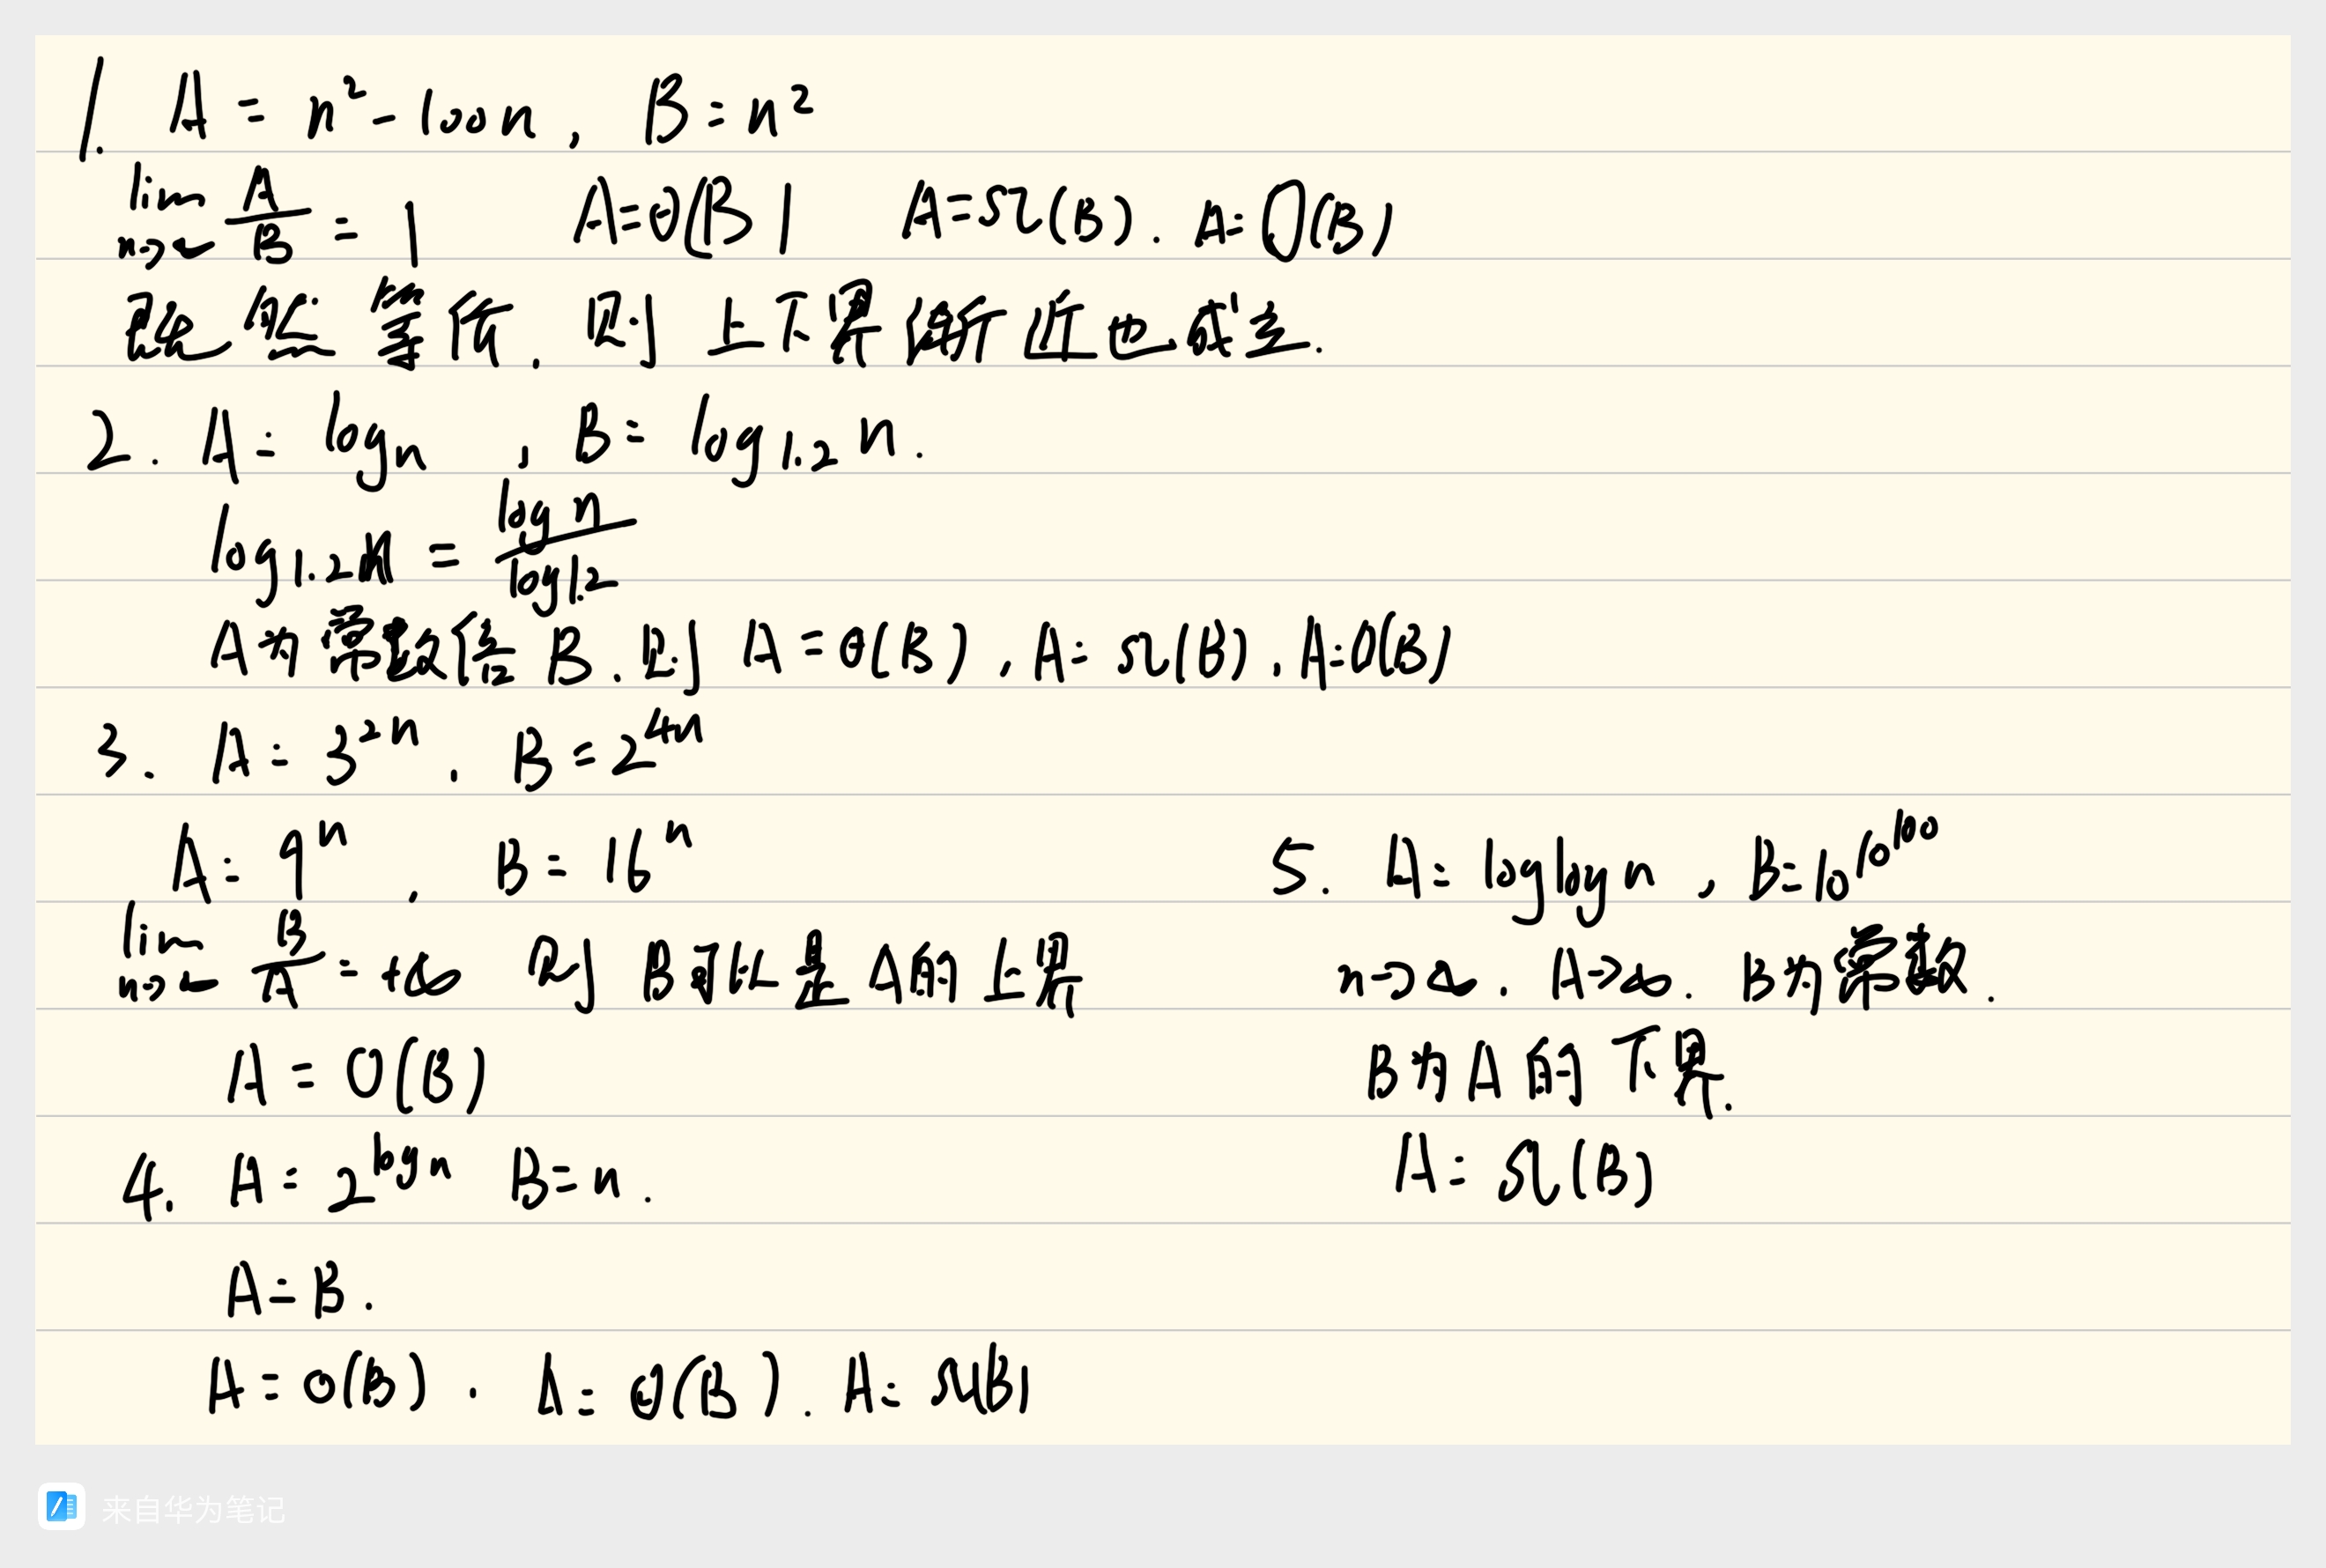 1. A = n²-100n, B=n²
lim n→∞ A/B = 1 A=Θ(B) A=Ω(B). A=O(B)
既然等价,则上下界渐近也成立.
2. A= log n , B= log₁.₂ n.
log₁.₂n = log n / log1.2
A为常数倍 B. 则 A=θ(B), A=Ω(B), A=O(B)
3. A= 3²ⁿ, B=2⁴ⁿ
A= 9ⁿ, B= 16ⁿ
lim n→∞ B/A = +∞ 则 B可以是A的上界
A = O(B)
4. A= 2^log n B=n.
A=B.
A=O(B). A=Θ(B). A=Ω(B)
5. A= log log n, B=10^10^100
n→∞. A→∞. B为常数.
B为A的下界.
A= Ω(B)
来自华为笔记